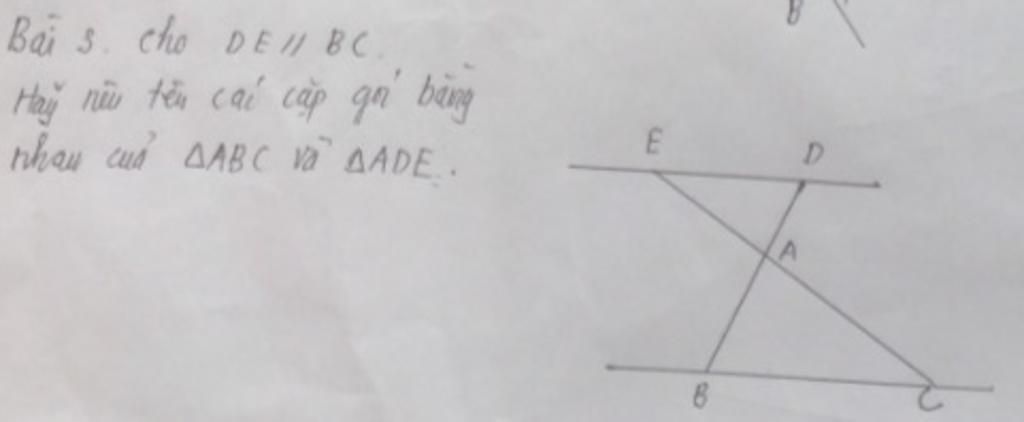 Bài 3. Cho DE // BC.
Hãy nêu tên các cặp góc bằng
nhau của ΔABC và ΔADE.
B
E
D
A
B
C